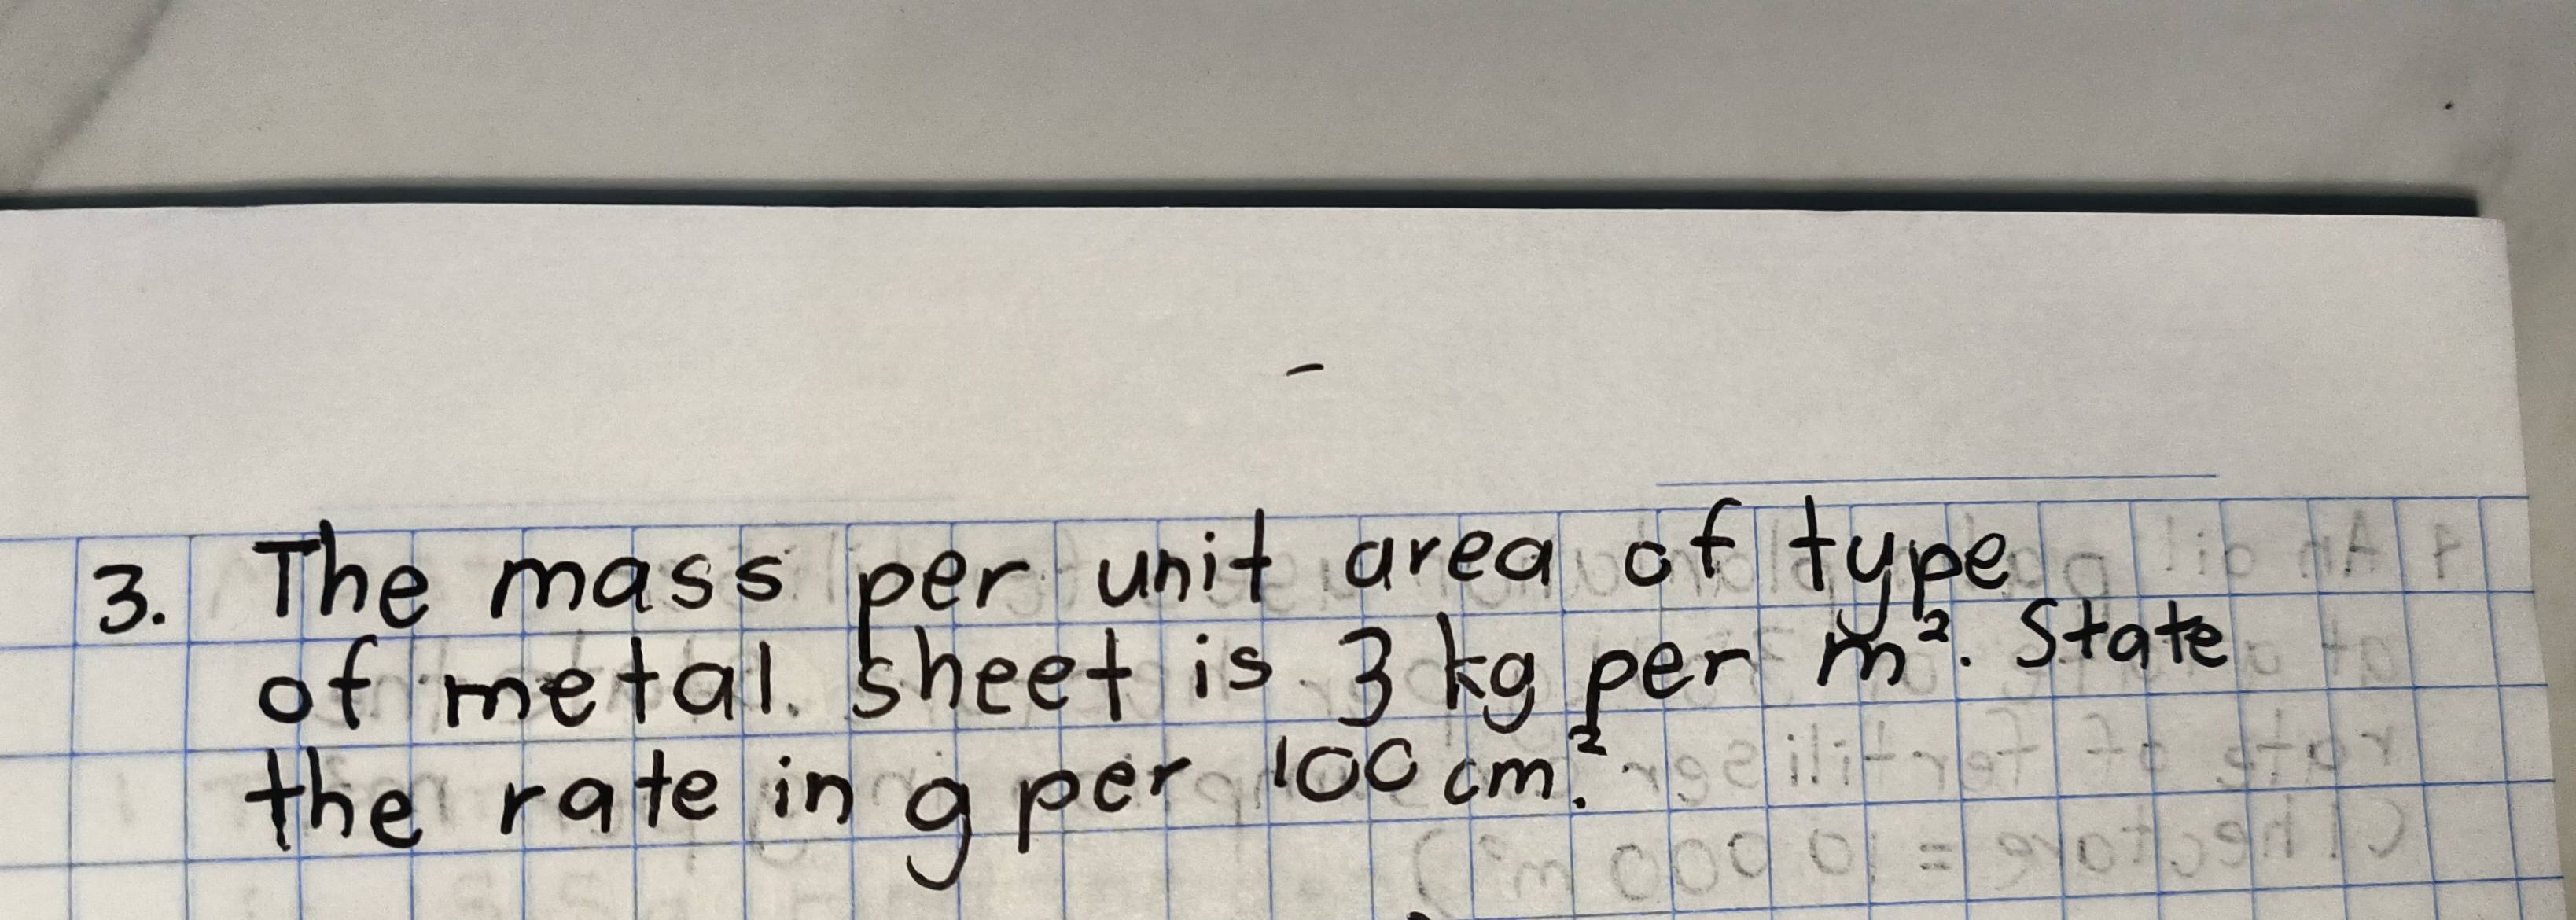 3. The mass per unit area of type
of metal sheet is 3 kg per m². State
the rate in g per 100 cm².